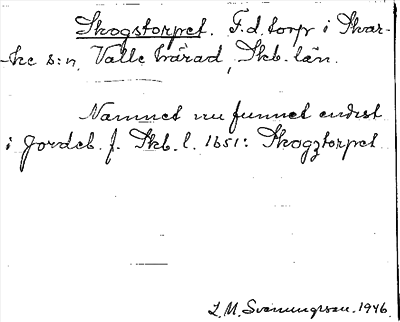 Skogstorpet. F.d. torp i Skar-
ke s:n, Valle härad, Skb. län.
Namnet nu funnet endast
i Jordeb. f. Skb. l. 1651: Skogztorpet
L. M. Svenungsson. 1946.